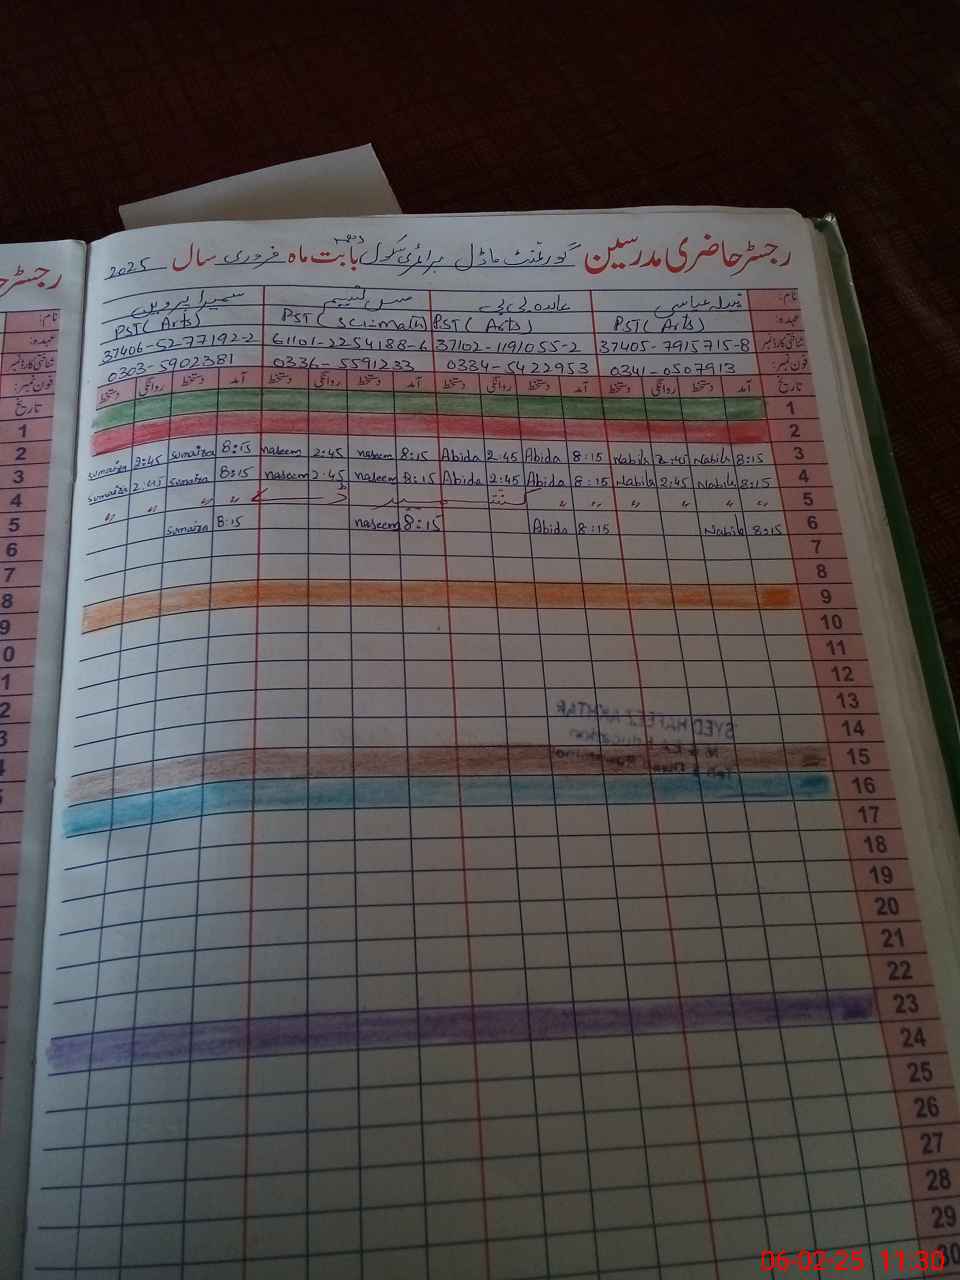 رجسٹر حاضری مدرسین گورنمنٹ ماڈل پرائمری سکول بابت ماہ فروری سال 2025
رجسٹر
نام: نبیلہ عباسی عابدہ بی بی مس نسیم سمیرا پروین
عہدہ: PST (Arts) PST (Arts) PST (Sci-math) PST (Arts)
شناختی کارڈ نمبر 37405-7915715-8 37102-1191055-2 61101-2254188-6 37406-5277192-2
فون نمبر: 0341-0507913 0334-5422953 0336-5591233 0303-5902381
تاریخ آمد دستخط روانگی دستخط آمد دستخط روانگی دستخط آمد دستخط روانگی دستخط آمد دستخط روانگی دستخط
1
2
3 8:15 Nabila 2:45 Nabila 8:15 Abida 2:45 Abida 8:15 naseem 2:45 naseem 8:15 Sumaira 2:45 Sumaira
4 8:15 Nabila 2:45 Nabila 8:15 Abida 2:45 Abida 8:15 naseem 2:45 naseem 8:15 Sumaira 2:45 Sumaira
5 〃 〃 〃 〃 〃 〃 کشمیر ڈے 〃 〃 〃 〃
6 8:15 Nabila 8:15 Abida 8:15 naseem 8:15 Sumaira
7
8
9
10
11
12
13
14
SYED HAFEEZ AKHTAR
15
16
17
18
19
20
21
22
23
24
25
26
27
28
29
30
نام:
عہدہ:
شناختی کارڈ نمبر
فون نمبر:
تاریخ
1
2
3
4
5
6
7
8
9
0
1
2
3
4
5
06-02-25 11:30